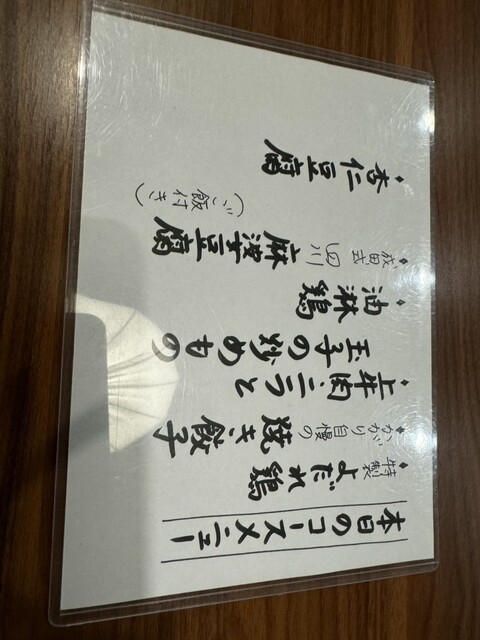 本日のコースメニュー
・特製 よだれ鶏
・かがり自慢の 焼き餃子
・上牛肉ニラと
玉子の炒めもの
・油淋鶏
・成田式 四川 麻婆豆腐
(ご飯付き)
・杏仁豆腐